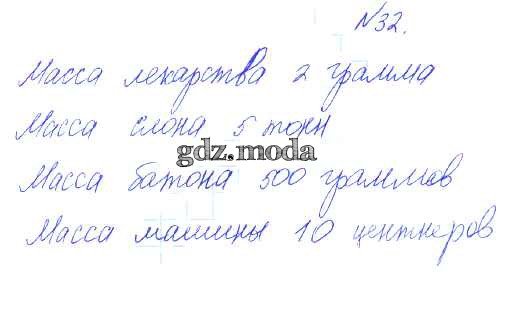 №32.
Масса лекарства 2 грамма
Масса слона 5 тонн
gdz.moda
Масса батона 500 граммов
Масса машины 10 центнеров